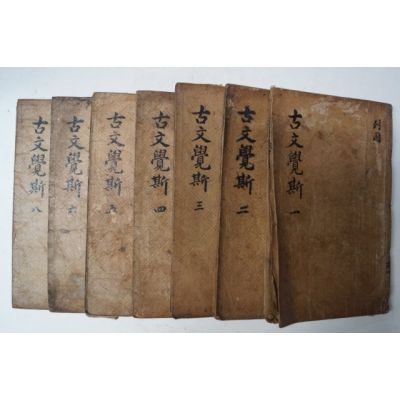 列國
古文覺斯 一
古文覺斯 二
古文覺斯 三
古文覺斯 四
古文覺斯 五
古文覺斯 六
古文覺斯 八